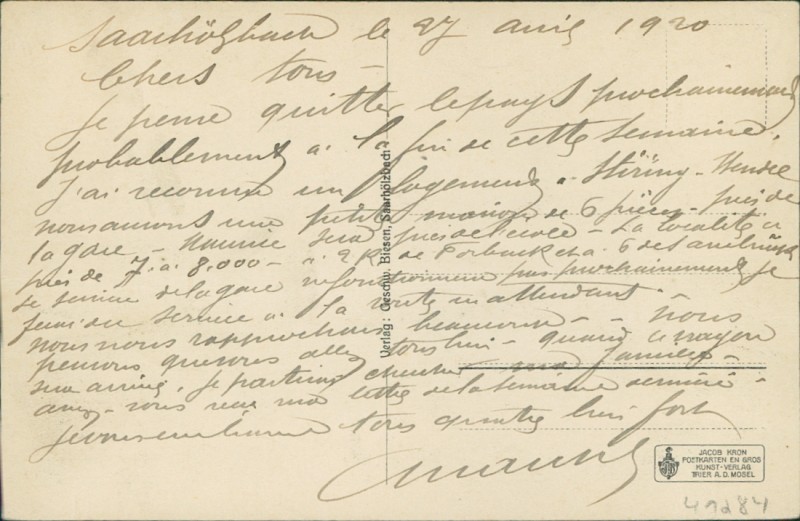 Saarhölzbach le 27 avril 1920
Chers tous -
Je pense quitter le pays prochainement
probablement à la fin de cette semaine.
J'ai reconnu un logement à Stiring-Wendel
nous aurons une petite maison de 6 pièces - près de
la gare - sera près de l'école - La localité a
près de 7 à 8.000 - à 2 K de Forbach et à 6 de Sarrebrück
le service de la gare pas prochainement je
ferai du service à la route en attendant.
nous nous rapprochons beaucoup - nous
pensons que vous allez tous bien - quand
je partirai chercher ma famille -
vous ma lettre de la semaine dernière -
Je vous embrasse tous quatre bien fort
Verlag: Geschw. Biesen, Saarhölzbach
JACOB KRON
POSTKARTEN EN GROS
KUNST-VERLAG
TRIER A.D. MOSEL
49284